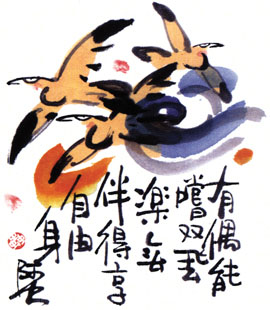 有偶能
嚐双飛
楽無
伴得享
自由
身